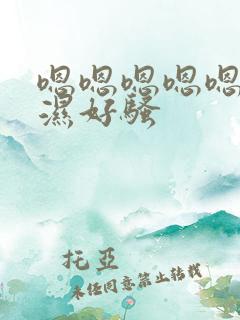 嗯嗯嗯嗯嗯
濕好騷
托亞
未任同意禁止转载